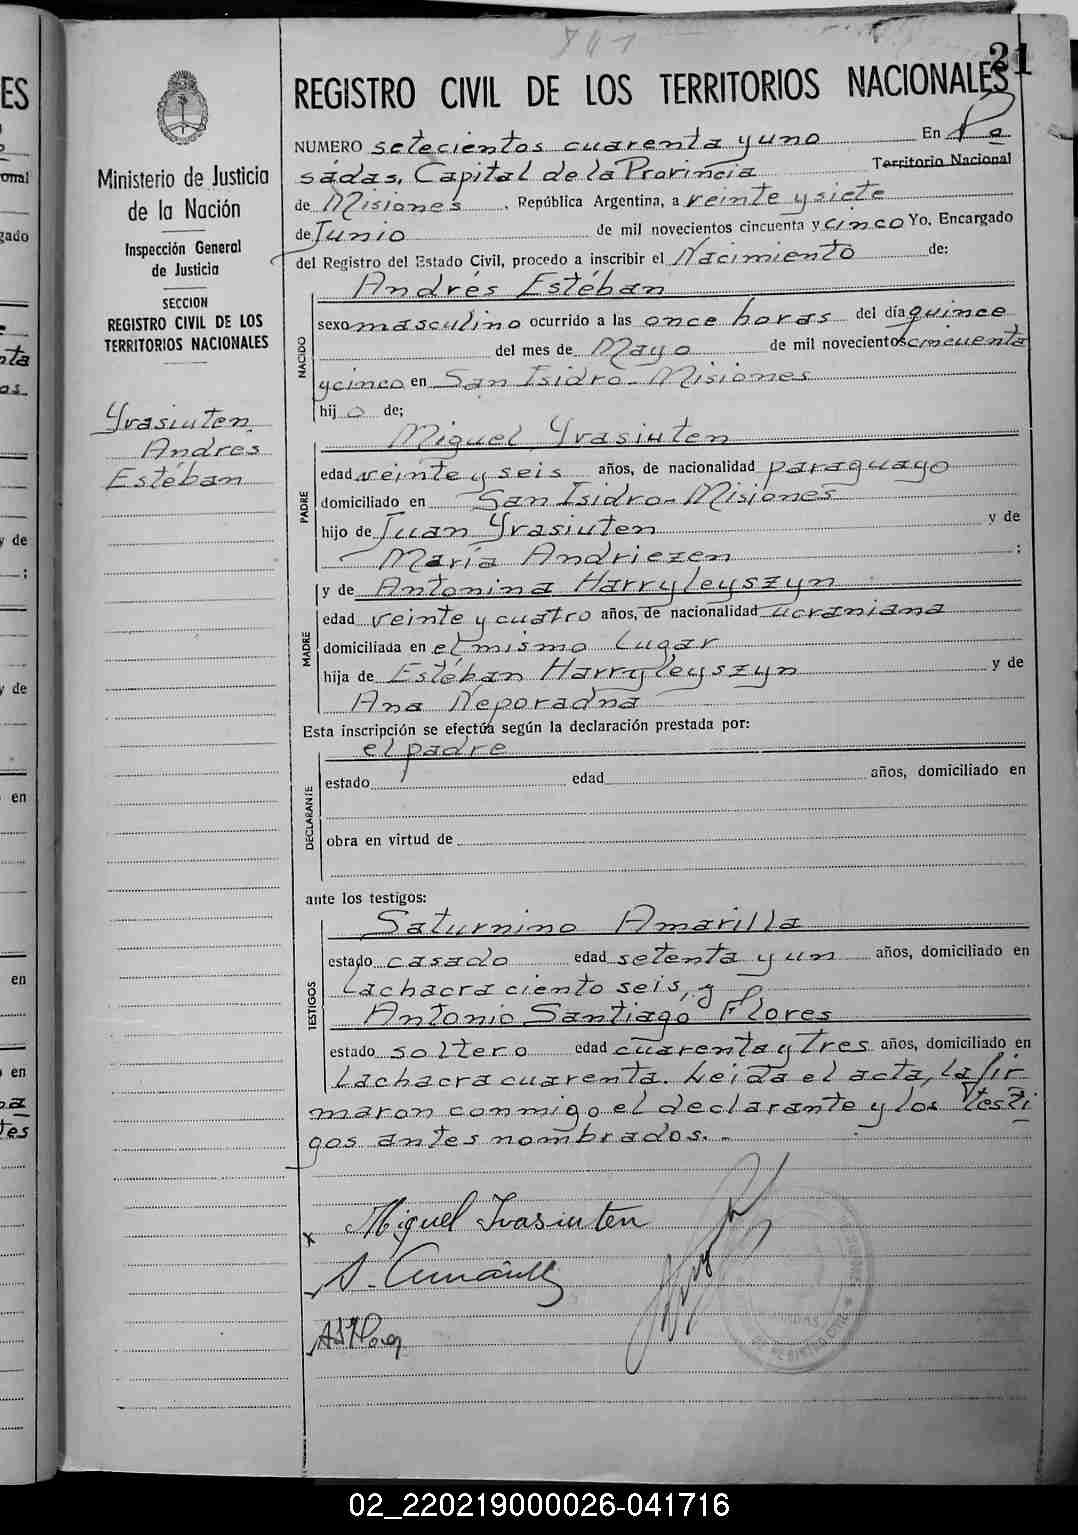 21
REGISTRO CIVIL DE LOS TERRITORIOS NACIONALES
Ministerio de Justicia
de la Nación
Inspección General
de Justicia
SECCION
REGISTRO CIVIL DE LOS
TERRITORIOS NACIONALES
Yrasiuten
Andrés
Estéban
NUMERO setecientos cuarenta y uno En Po
sádas, Capital de la Provincia Territorio Nacional
de Misiones, República Argentina, a veinte y siete
de Junio de mil novecientos cincuenta y cinco Yo, Encargado
del Registro del Estado Civil, procedo a inscribir el Nacimiento de:
NACIDO
Andrés Estéban
sexo masculino ocurrido a las once horas del día quince
del mes de Mayo de mil novecientos cincuenta
y cinco en San Isidro - Misiones
hij o de;
PADRE
Miguel Yrasiuten
edad veinte y seis años, de nacionalidad paraguayo
domiciliado en San Isidro - Misiones
hijo de Juan Yrasiuten y de
María Andriezen ;
MADRE
y de Antonina Harryleyszyn
edad veinte y cuatro años, de nacionalidad ucraniana
domiciliada en el mismo lugar
hija de Estéban Harryleyszyn y de
Ana Neporadna
Esta inscripción se efectúa según la declaración prestada por:
DECLARANTE
el padre
estado edad años, domiciliado en
obra en virtud de
ante los testigos:
TESTIGOS
Saturnino Amarilla
estado casado edad setenta y un años, domiciliado en
La chacra ciento seis, y
Antonio Santiago Flores
estado soltero edad cuarenta y tres años, domiciliado en
La chacra cuarenta. Leida el acta, la fir
maron conmigo el declarante y los testi
gos antes nombrados. -
x Miguel Irasiuten
02_220219000026-041716